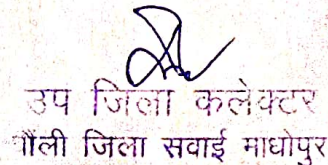 उप जिला कलेक्टर
ौंली जिला सवाई माधोपुर